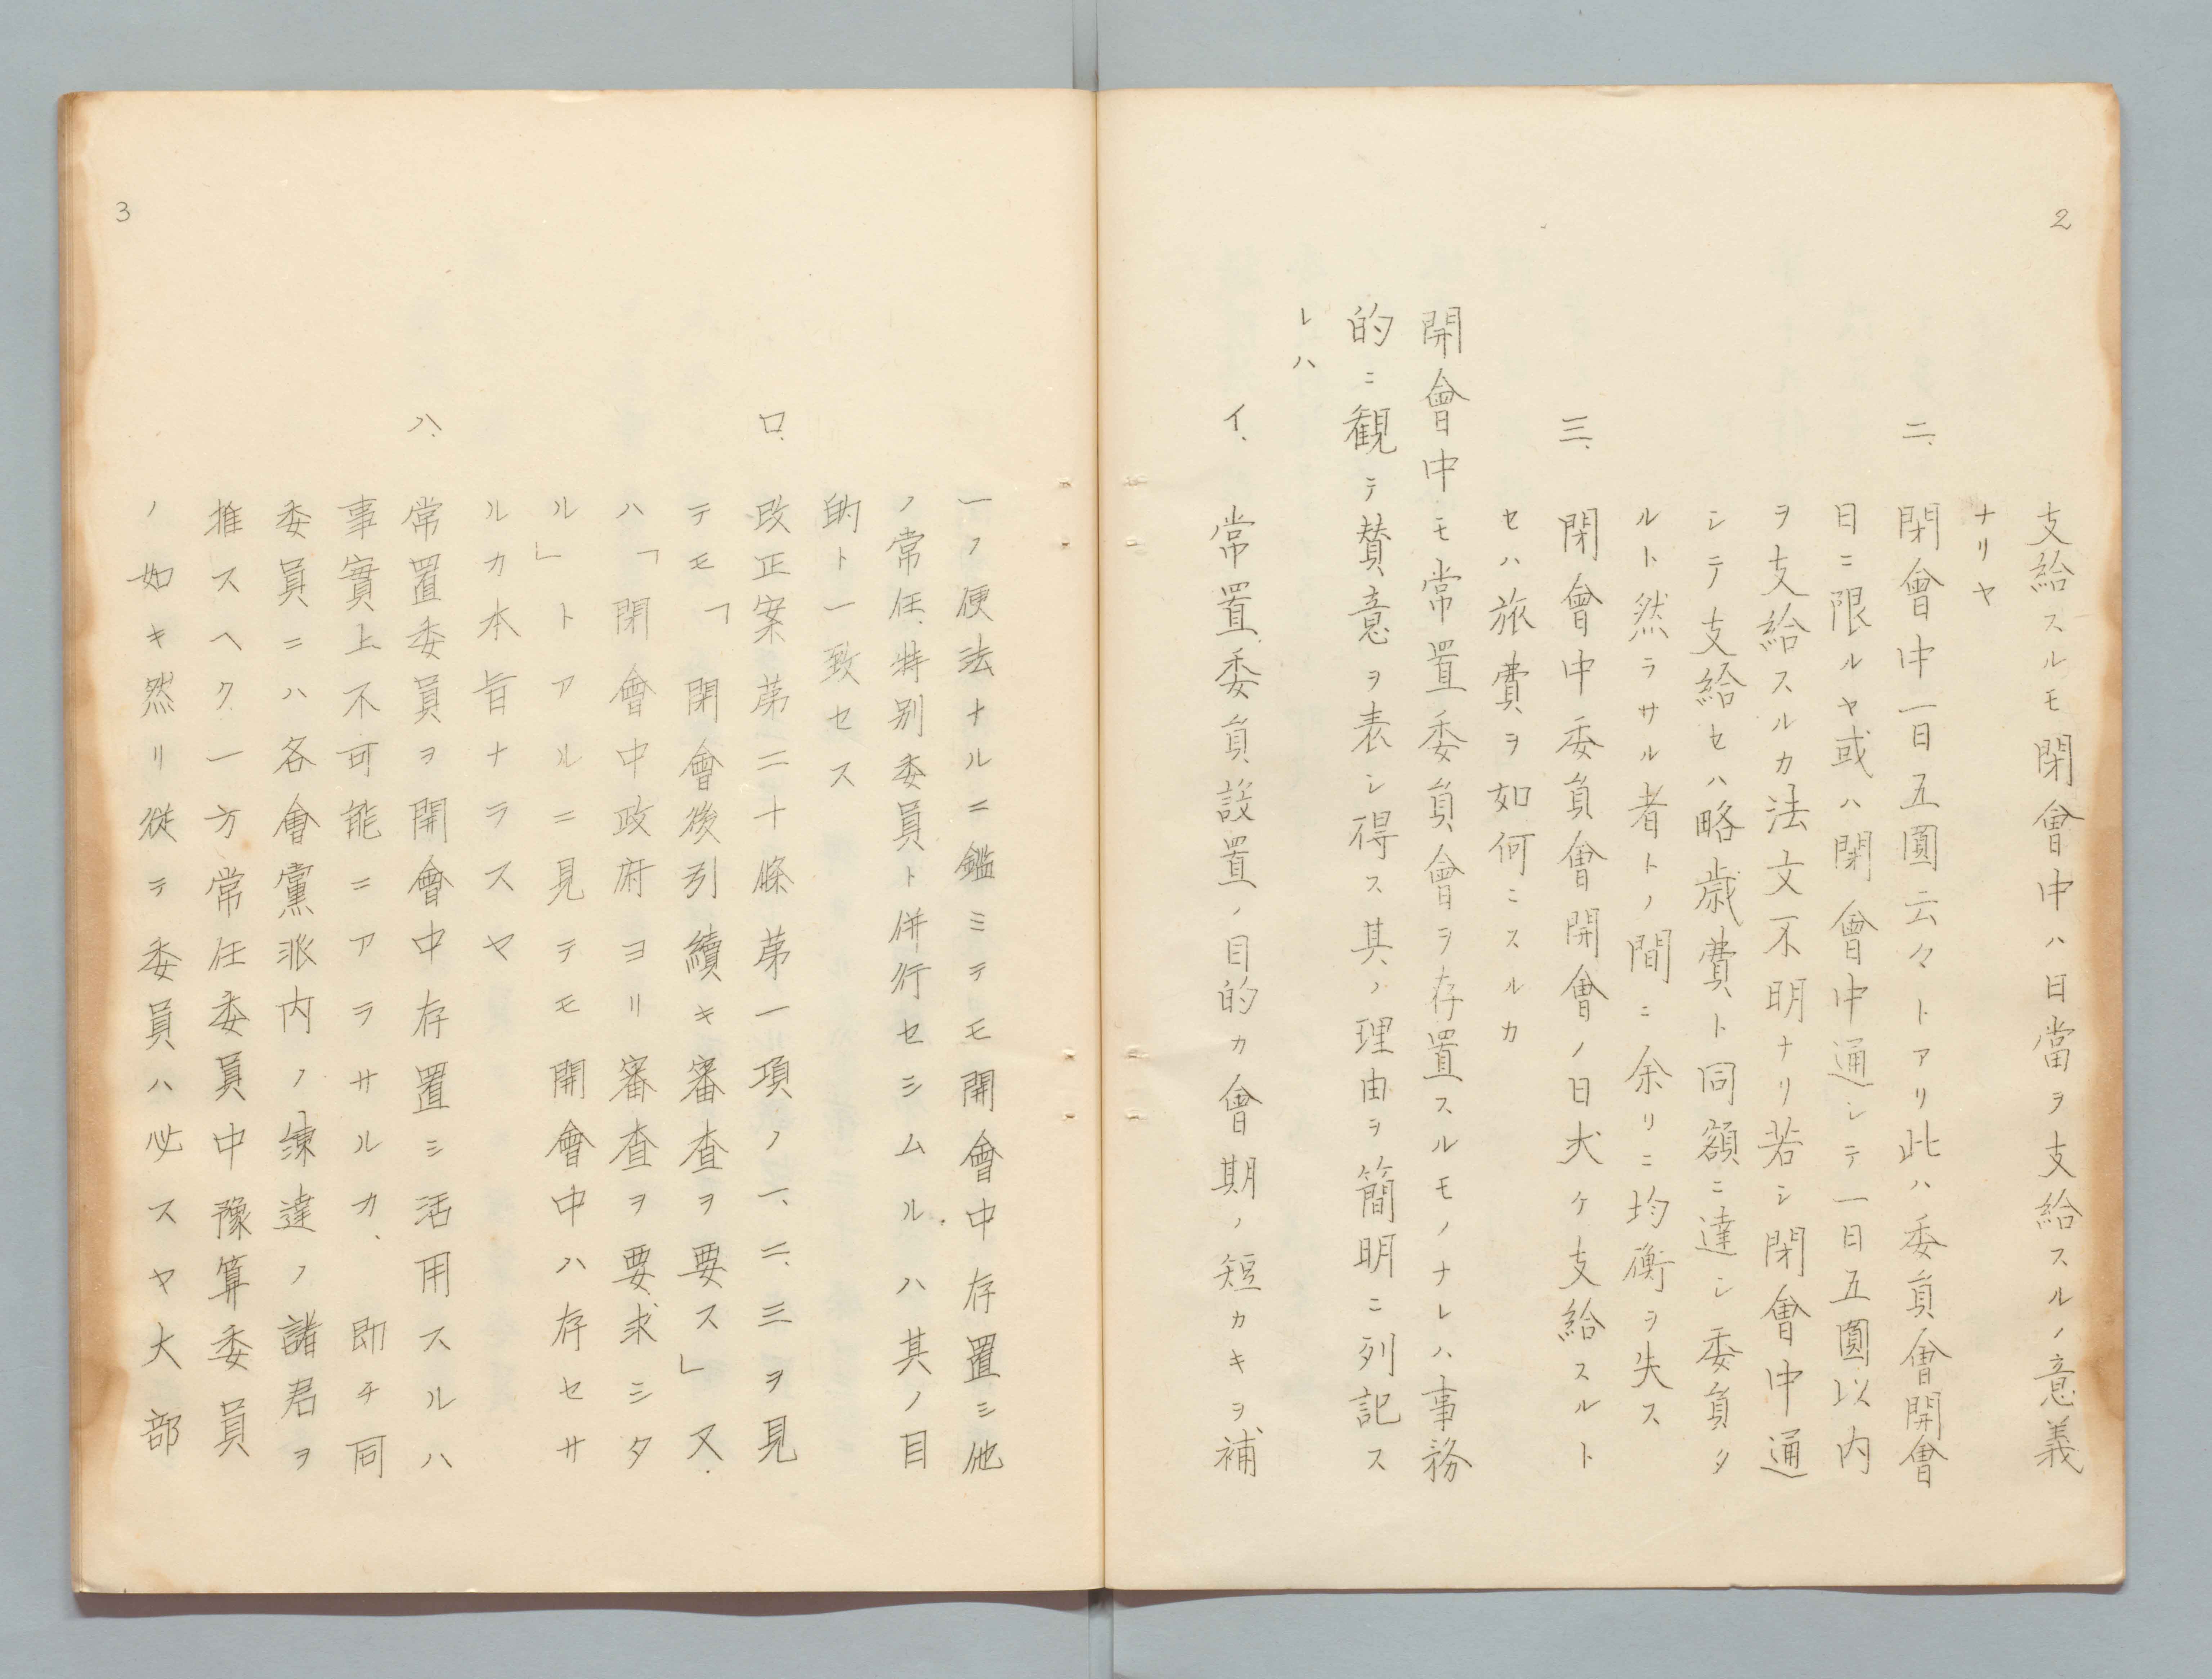 2
支給スルモ閉會中ハ日當ヲ支給スルノ意義
ナリヤ
二、閉會中一日五圓云々トアリ此ハ委員會開會
日ニ限ルヤ或ハ閉會中通シテ一日五圓以内
ヲ支給スルカ法文不明ナリ若シ閉會中通
シテ支給セハ略歳費ト同額ニ達シ委員タ
ルト然ラサル者トノ間ニ余リニ均衡ヲ失ス
三、閉會中委員會開會ノ日丈ケ支給スルト
セハ旅費ヲ如何ニスルカ
開會中モ常置委員會ヲ存置スルモノナレハ事務
的ニ観テ賛意ヲ表シ得ス其ノ理由ヲ簡明ニ列記ス
レハ
イ、常置委員設置ノ目的カ會期ノ短カキヲ補
一ノ便法ナルニ鑑ミテモ開會中存置シ他
ノ常任、特別委員ト併行セシムルハ其ノ目
的ト一致セス
ロ、改正案第二十條第一項ノ一、二、三ヲ見
テモ「閉會後引續キ審査ヲ要ス」又
ハ「閉會中政府ヨリ審査ヲ要求シタ
ル」トアルニ見テモ開會中ハ存セサ
ルカ本旨ナラスヤ
ハ、常置委員ヲ開會中存置シ活用スルハ
事實上不可能ニアラサルカ、即チ同
委員ニハ各會黨派内ノ練達ノ諸君ヲ
推スヘク一方常任委員中豫算委員
ノ如キ然リ従テ委員ハ必スヤ大部
3